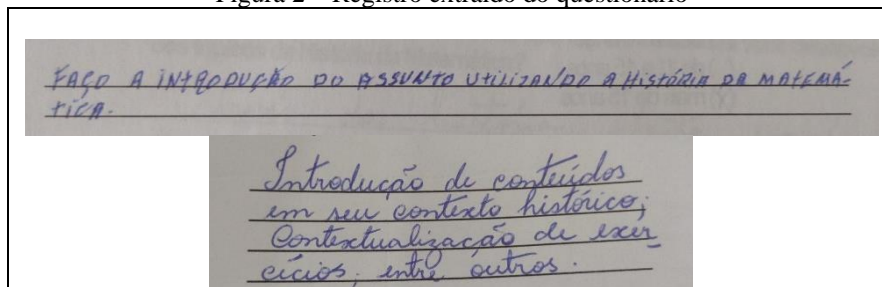 Figura 2 – Registro extraído do questionário
FAÇO A INTRODUÇÃO DO ASSUNTO UTILIZANDO A HISTÓRIA DA MATEMÁ-
TICA.
Introdução de conteúdos
em seu contexto histórico;
Contextualização de exer
cícios, entre outros.